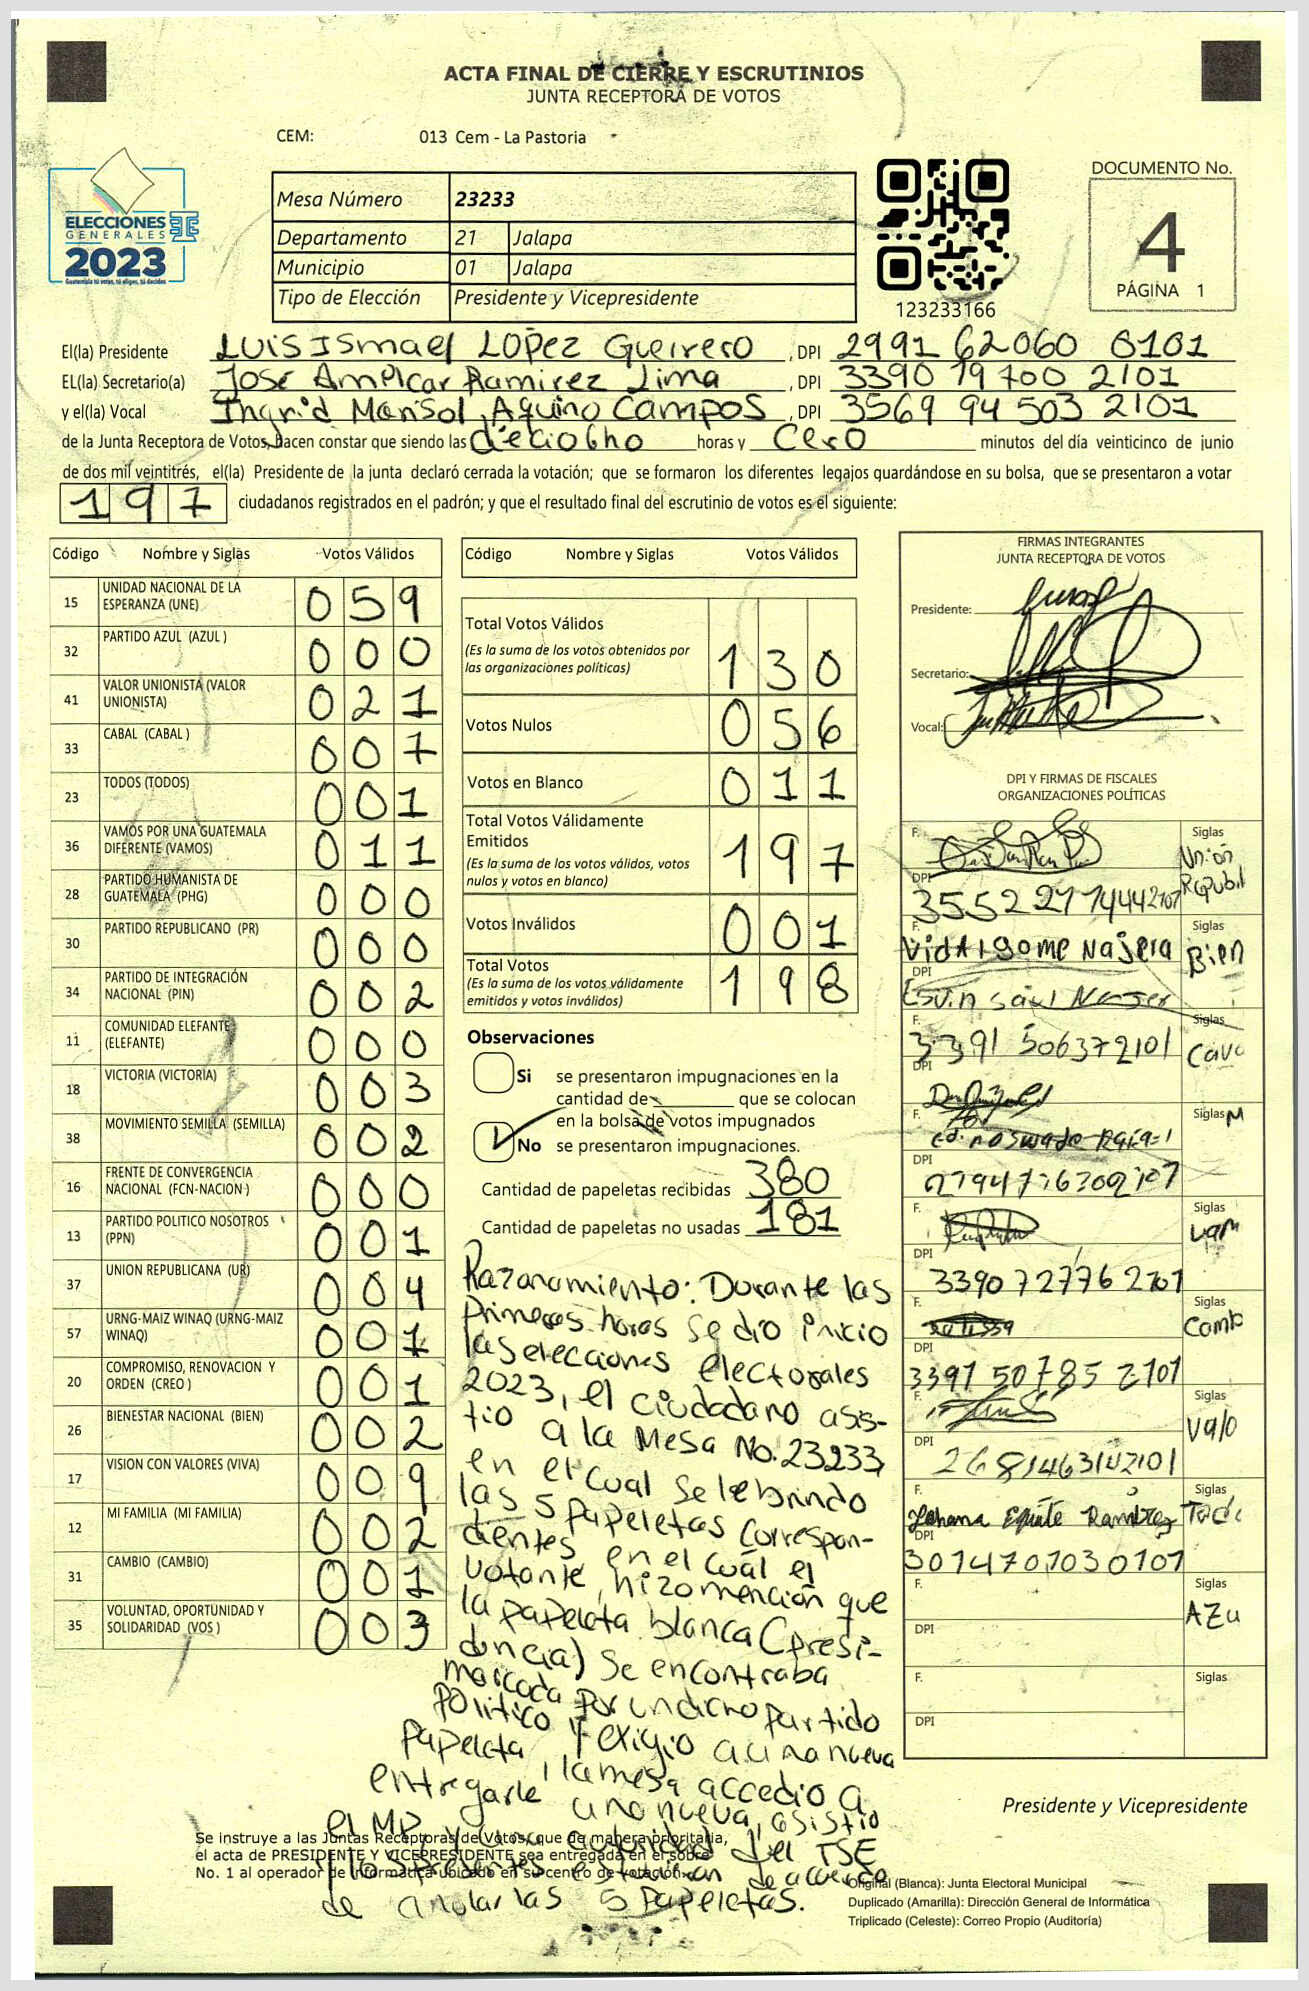 ACTA FINAL DE CIERRE Y ESCRUTINIOS
JUNTA RECEPTORA DE VOTOS
CEM: 013 Cem - La Pastoria
DOCUMENTO No.
4
PÁGINA 1
ELECCIONES
GENERALES
2023
Guatemala tú votas, tú eliges, tú decides
Mesa Número 23233
Departamento 21 Jalapa
Municipio 01 Jalapa
Tipo de Elección Presidente y Vicepresidente
123233166
El(la) Presidente Luis Ismael López Guerrero , DPI 2991 62060 0101
EL(la) Secretario(a) José Amilcar Ramirez Lima , DPI 3390 19700 2101
y el(la) Vocal Ingrid Marisol Aquino Campos , DPI 3569 94503 2101
de la Junta Receptora de Votos, hacen constar que siendo las dieciocho horas y cero minutos del día veinticinco de junio
de dos mil veintitrés, el(la) Presidente de la junta declaró cerrada la votación; que se formaron los diferentes legajos guardándose en su bolsa, que se presentaron a votar
197 ciudadanos registrados en el padrón; y que el resultado final del escrutinio de votos es el siguiente:
Código Nombre y Siglas Votos Válidos
15 UNIDAD NACIONAL DE LA ESPERANZA (UNE) 059
32 PARTIDO AZUL (AZUL ) 000
41 VALOR UNIONISTA (VALOR UNIONISTA) 021
33 CABAL (CABAL ) 007
23 TODOS (TODOS) 001
36 VAMOS POR UNA GUATEMALA DIFERENTE (VAMOS) 011
28 PARTIDO HUMANISTA DE GUATEMALA (PHG) 000
30 PARTIDO REPUBLICANO (PR) 000
34 PARTIDO DE INTEGRACIÓN NACIONAL (PIN) 002
11 COMUNIDAD ELEFANTE (ELEFANTE) 000
18 VICTORIA (VICTORIA) 003
38 MOVIMIENTO SEMILLA (SEMILLA) 002
16 FRENTE DE CONVERGENCIA NACIONAL (FCN-NACION ) 000
13 PARTIDO POLITICO NOSOTROS (PPN) 001
37 UNION REPUBLICANA (UR) 004
57 URNG-MAIZ WINAQ (URNG-MAIZ WINAQ) 001
20 COMPROMISO, RENOVACION Y ORDEN (CREO ) 001
26 BIENESTAR NACIONAL (BIEN) 002
17 VISION CON VALORES (VIVA) 009
12 MI FAMILIA (MI FAMILIA) 002
31 CAMBIO (CAMBIO) 001
35 VOLUNTAD, OPORTUNIDAD Y SOLIDARIDAD (VOS ) 003
Código Nombre y Siglas Votos Válidos
Total Votos Válidos
(Es la suma de los votos obtenidos por las organizaciones políticas) 130
Votos Nulos 056
Votos en Blanco 011
Total Votos Válidamente Emitidos
(Es la suma de los votos válidos, votos nulos y votos en blanco) 197
Votos Inválidos 001
Total Votos
(Es la suma de los votos válidamente emitidos y votos inválidos) 198
Observaciones
Si se presentaron impugnaciones en la
cantidad de que se colocan
en la bolsa de votos impugnados
No se presentaron impugnaciones.
Cantidad de papeletas recibidas 380
Cantidad de papeletas no usadas 181
Razonamiento: Durante las
primeras horas se dio inicio
las elecciones electorales
2023, el ciudadano asis-
tio a la Mesa No. 23233
en el cual se le brindo
las 5 papeletas correspon-
dientes en el cual el
votante, hizo mención que
la papeleta blanca (presi-
dencia) se encontraba
marcada por un dicho partido
politico y exigio a una nueva
papeleta, la mesa accedio a
entregarle una nueva, asistio
el MP y una autoridad del TSE
y los presentes estuvieron de acuerdo
de anular las 5 papeletas.
FIRMAS INTEGRANTES
JUNTA RECEPTORA DE VOTOS
Presidente:
Secretario:
Vocal:
DPI Y FIRMAS DE FISCALES
ORGANIZACIONES POLÍTICAS
F. Siglas Union Republ
DPI 3552 27174442101
F. Vidal Gome Najera Siglas Bien
DPI
F. 3391 506372101 Siglas Cava
DPI
F. Siglas M
DPI
F. Siglas vam
DPI 3390 72776 2101
F. Siglas Camb
DPI 3391 50785 2101
F. Siglas Valo
DPI
F. Johana Equite Ramirez Siglas Todo
DPI 3014701030101
F. Siglas AZU
DPI
F. Siglas
DPI
Presidente y Vicepresidente
Se instruye a las Juntas Receptoras de Votos, que de manera prioritaria,
el acta de PRESIDENTE Y VICEPRESIDENTE sea entregada en el sobre
No. 1 al operador de informática ubicado en su centro de votación.
Original (Blanca): Junta Electoral Municipal
Duplicado (Amarilla): Dirección General de Informática
Triplicado (Celeste): Correo Propio (Auditoría)